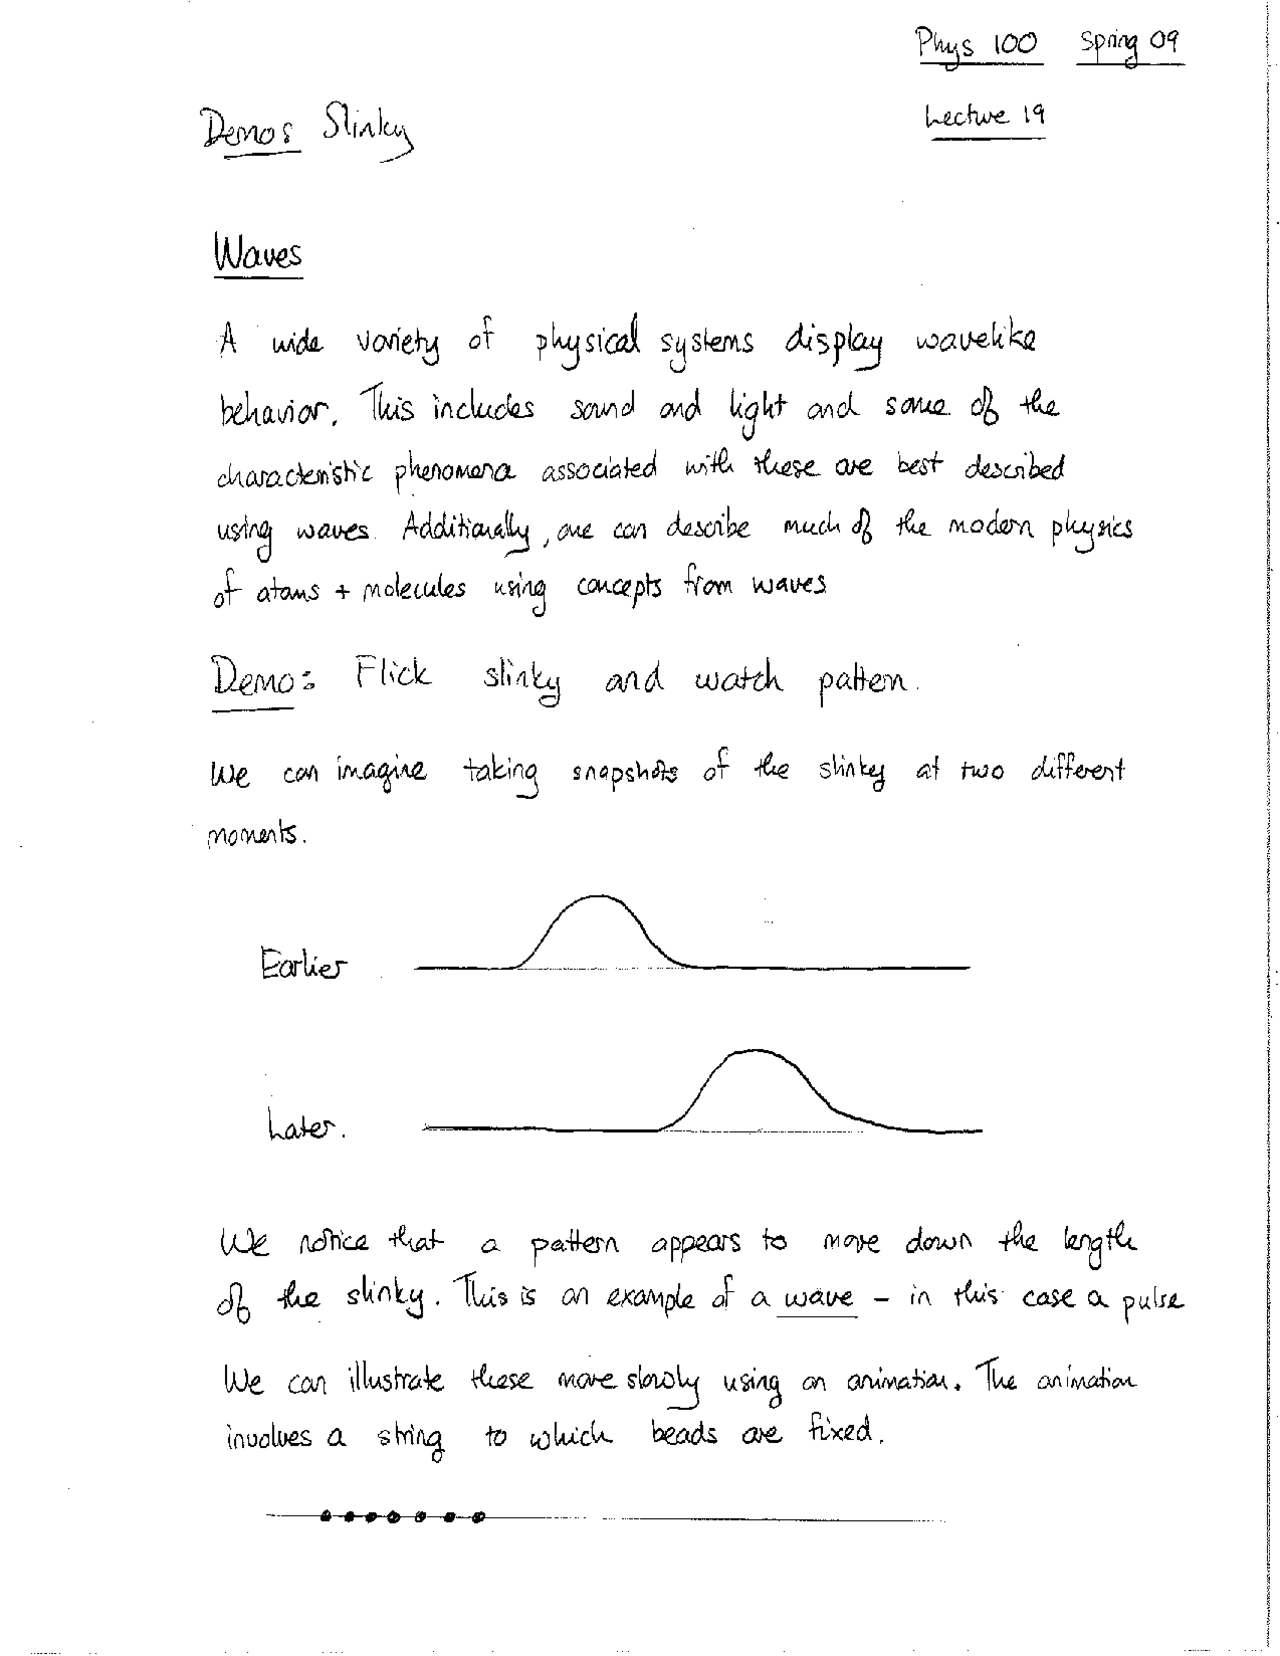 Phys 100 Spring 09
Demo: Slinky
Lecture 19
Waves
A wide variety of physical systems display wavelike
behavior. This includes sound and light and some of the
characteristic phenomena associated with these are best described
using waves. Additionally, one can describe much of the modern physics
of atoms + molecules using concepts from waves
Demo: Flick slinky and watch pattern.
We can imagine taking snapshots of the slinky at two different
moments.
Earlier
Later.
We notice that a pattern appears to move down the length
of the slinky. This is an example of a wave – in this case a pulse
We can illustrate these more slowly using an animation. The animation
involves a string to which beads are fixed.